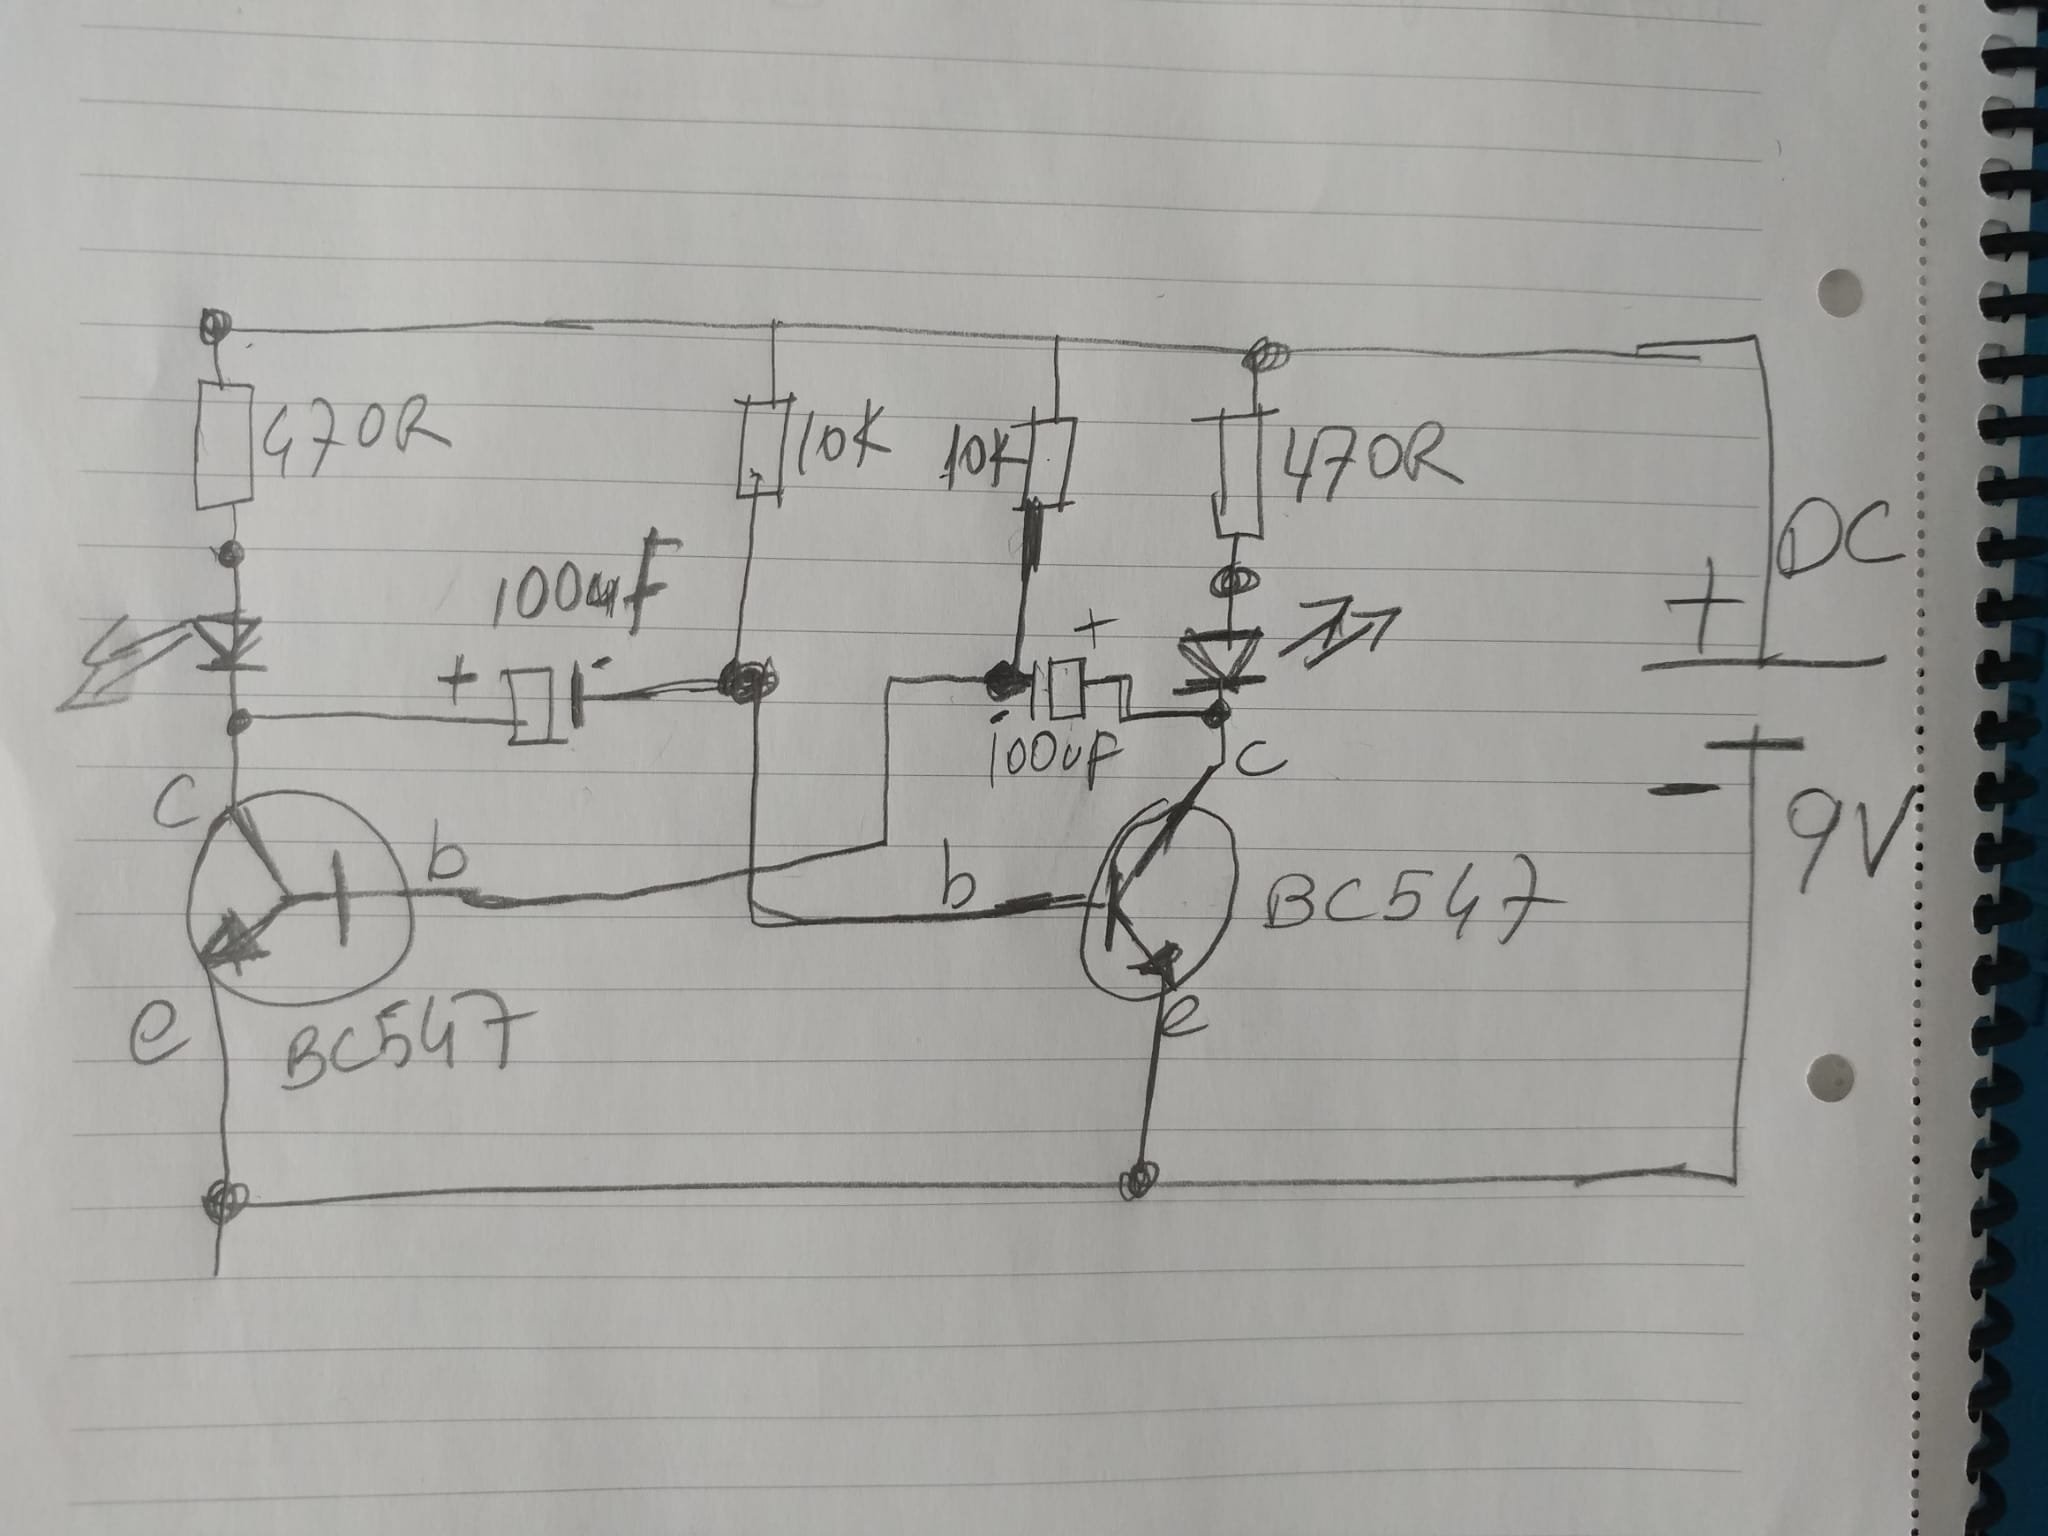 470R
10K
10K
470R
DC
100uF
+
-
+
+
-
100uF
c
c
-
9V
b
b
BC547
e
e
BC547